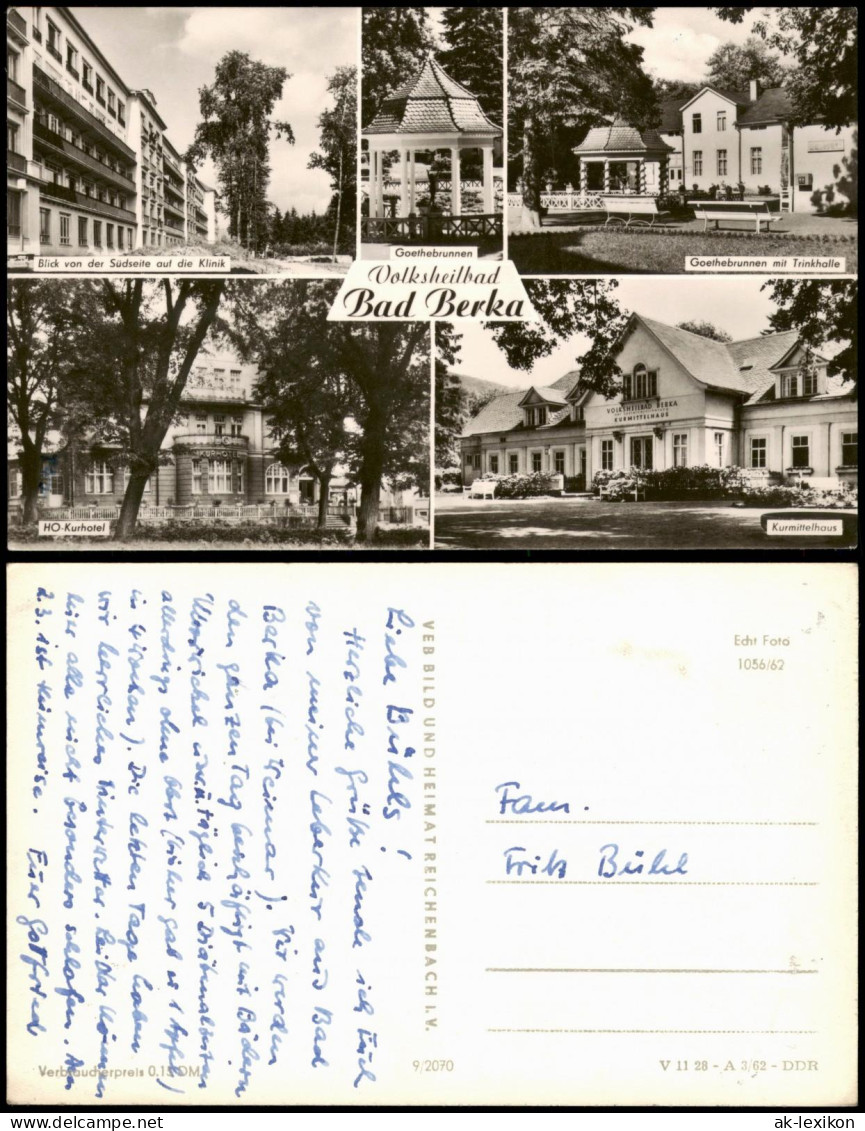 Blick von der Südseite auf die Klinik
Goethebrunnen
Goethebrunnen mit Trinkhalle
Volksheilbad
Bad Berka
KURHOTEL
VOLKSHEILBAD BERKA
KURMITTELHAUS
HO-Kurhotel
Kurmittelhaus
Liebe Bühls!
Herzliche Grüße sende ich Euch
von meiner Leberkur aus Bad
Berka (bei Weimar). Wir werden
den ganzen Tag beschäftigt mit Bädern
täglich 5 Diätmalzeiten
allerdings ohne Obst (bisher gab es 1 Apfel
in 4 Wochen). Die letzten Tage haben
wir herrliches Winterwetter. Leider können
hier alle nicht besonders schlafen. Am
2.3. ist Heimreise. Euer Gottfried
VEB BILD UND HEIMAT REICHENBACH I. V.
Echt Foto
1056/62
Fam.
Fritz Bühl
Verbraucherpreis 0.15 DM
9/2070
V 11 28 - A 3/62 - DDR
ak-lexikon